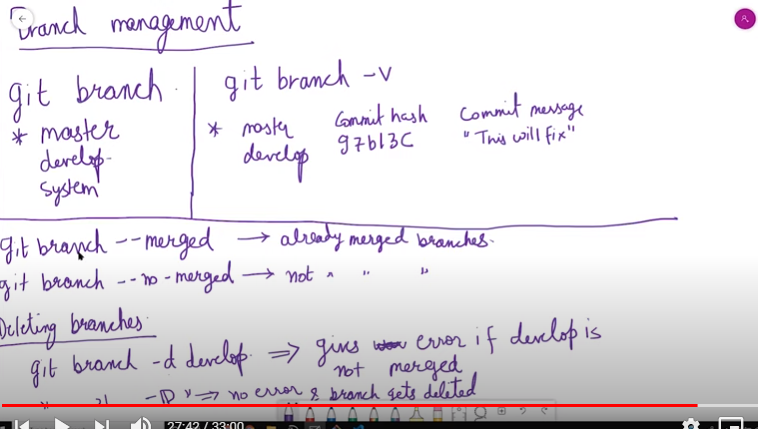 Branch management
git branch
* master
develop
system
git branch -v
Commit hash
Commit message
* master
develop 97b13C "This will fix"
git branch --merged → already merged branches.
git branch --no-merged → not " " "
Deleting branches.
git branch -d develop ⇒ gives error if develop is
not merged
" " -D " ⇒ no error & branch gets deleted
27:42 / 33:00